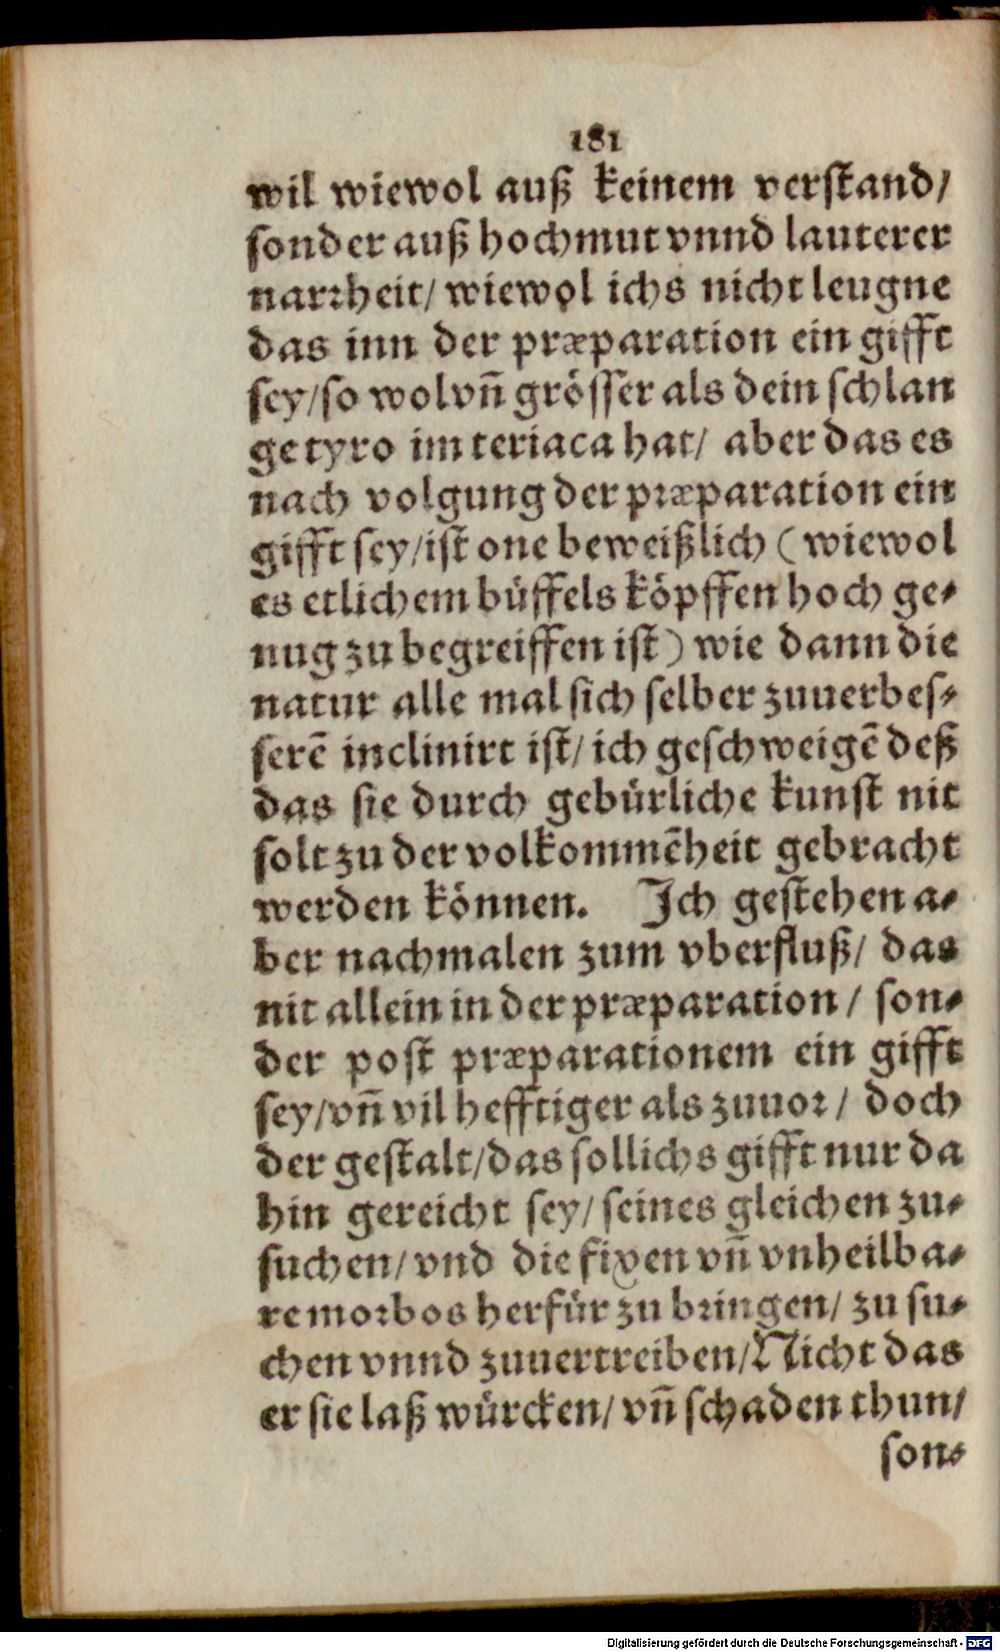 181
wil wiewol auß keinem verstand/
sonder auß hochmut vnnd lauterer
narꝛheit/ wiewol ichs nicht leugne
das inn der præparation ein gifft
sey/so wol vñ grösser als dein schlan
ge tyro im teriaca hat/ aber das es
nach volgung der pꝛæparation ein
gifft sey/ist one beweißlich (wiewol
es etlichem büffels köpffen hoch ge-
nug zu begreiffen ist) wie dann die
natur alle mal sich selber zuuerbes-
serẽ inclinirt ist/ ich geschweigẽ deß
das sie durch gebürliche kunst nit
solt zu der volkommẽheit gebracht
werden können. Ich gestehen a-
ber nachmalen zum vberfluß/ das
nit allein in der præparation / son-
der post præparationem ein gifft
sey/vñ vil hefftiger als zuuoꝛ / doch
der gestalt/das sollichs gifft nur da
hin gereicht sey/ seines gleichen zu-
suchen/ vnd die fixen vñ vnheilba-
re moꝛbos herfür zu bꝛingen/ zu su-
chen vnnd zuuertreiben/Nicht das
er sie laß würcken/ vñ schaden thun/
son-
Digitalisierung gefördert durch die Deutsche Forschungsgemeinschaft - DFG